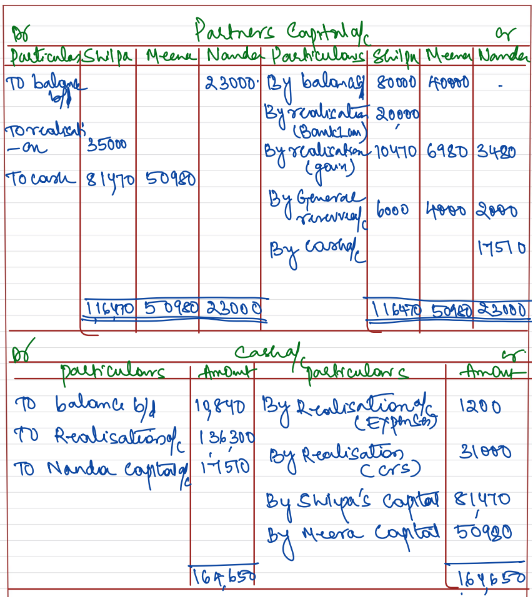 Dr Partners Capital a/c Cr
Particulars Shilpa Meena Nanda Particulars Shilpa Meena Nanda
To balance b/d 23000 By balance b/d 80000 40000 -
By realisation (Bank Loan) 20000
To realisati-on 35000
By realisation (gain) 10470 6980 3480
To cash 81,470 50980
By General reserve a/c 6000 4000 2000
By cash a/c 17510
116470 50980 23000 116470 50980 23000
Dr Cash a/c Cr
Particulars Amount Particulars Amount
To balance b/d 10,840 By Realisation a/c (Expenses) 1200
To Realisation a/c 136,300
To Nanda capital a/c 17510 By Realisation (crs) 31000
By Shilpa's Capital 81,470
By Meera Capital 50980
164,650 164,650